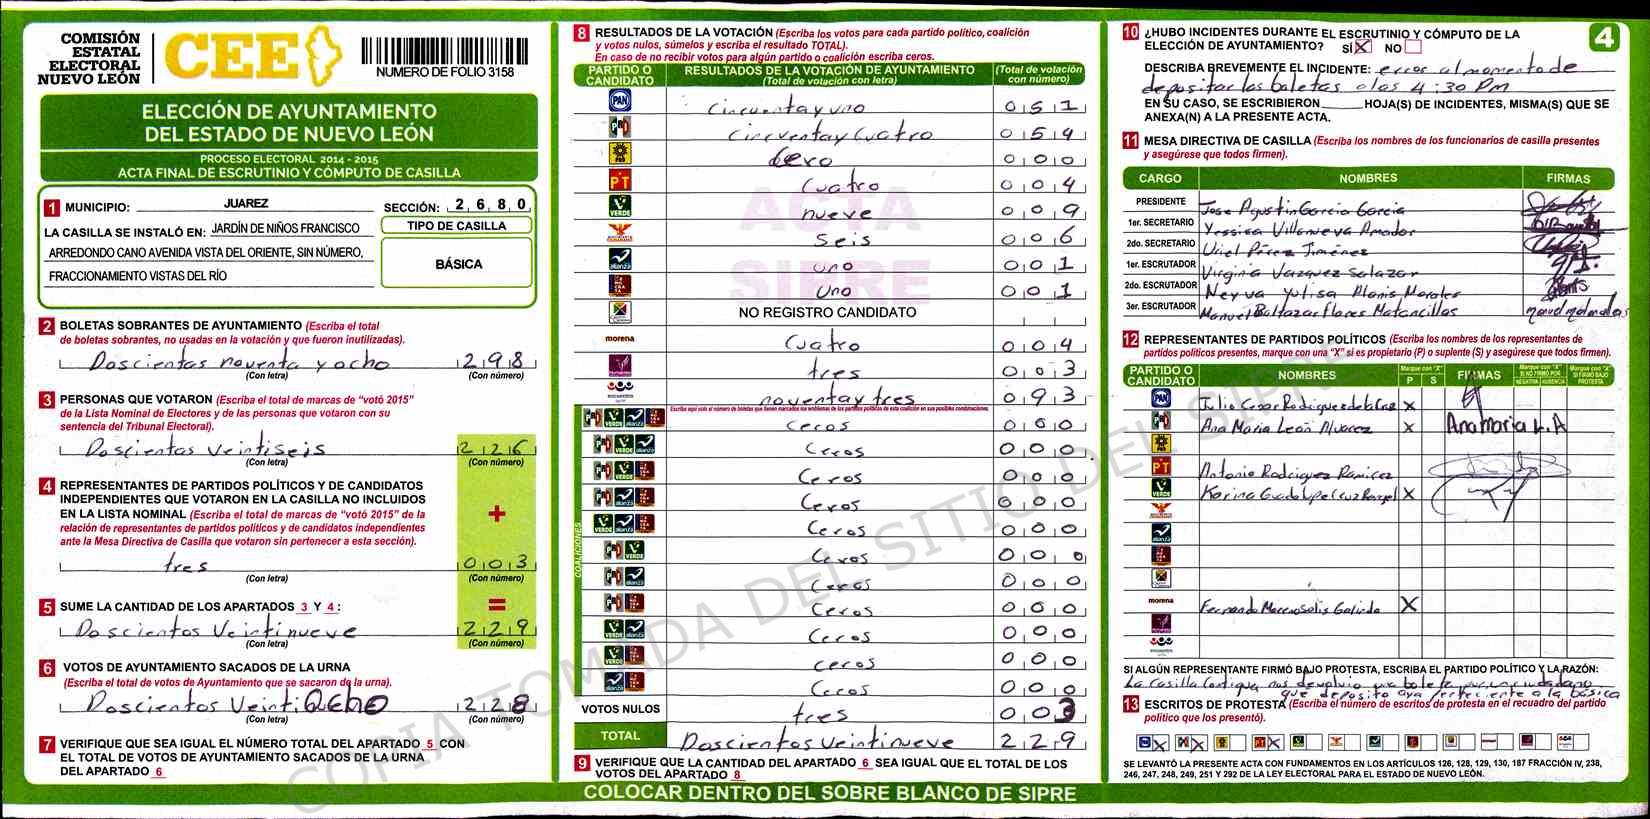 COMISIÓN
ESTATAL
ELECTORAL
NUEVO LEÓN
CEE
NUMERO DE FOLIO 3158
ELECCIÓN DE AYUNTAMIENTO
DEL ESTADO DE NUEVO LEÓN
PROCESO ELECTORAL 2014 - 2015
ACTA FINAL DE ESCRUTINIO Y CÓMPUTO DE CASILLA
1 MUNICIPIO: JUAREZ SECCIÓN: 2 6 8 0
LA CASILLA SE INSTALÓ EN: JARDÍN DE NIÑOS FRANCISCO
ARREDONDO CANO AVENIDA VISTA DEL ORIENTE, SIN NÚMERO,
FRACCIONAMIENTO VISTAS DEL RÍO
TIPO DE CASILLA
BÁSICA
2 BOLETAS SOBRANTES DE AYUNTAMIENTO (Escriba el total
de boletas sobrantes, no usadas en la votación y que fueron inutilizadas).
Doscientas noventa y ocho 2 9 8
(Con letra) (Con número)
3 PERSONAS QUE VOTARON (Escriba el total de marcas de "votó 2015"
de la Lista Nominal de Electores y de las personas que votaron con su
sentencia del Tribunal Electoral).
Doscientos veintiseis 2 2 6
(Con letra) (Con número)
4 REPRESENTANTES DE PARTIDOS POLÍTICOS Y DE CANDIDATOS
INDEPENDIENTES QUE VOTARON EN LA CASILLA NO INCLUIDOS
EN LA LISTA NOMINAL (Escriba el total de marcas de "votó 2015" de la
relación de representantes de partidos políticos y de candidatos independientes
ante la Mesa Directiva de Casilla que votaron sin pertenecer a esta sección).
+
tres 0 0 3
(Con letra) (Con número)
5 SUME LA CANTIDAD DE LOS APARTADOS 3 Y 4 : =
Doscientos Veintinueve 2 2 9
(Con letra) (Con número)
6 VOTOS DE AYUNTAMIENTO SACADOS DE LA URNA
(Escriba el total de votos de Ayuntamiento que se sacaron de la urna).
Doscientos Veintiocho 2 2 8
(Con letra) (Con número)
7 VERIFIQUE QUE SEA IGUAL EL NÚMERO TOTAL DEL APARTADO 5 CON
EL TOTAL DE VOTOS DE AYUNTAMIENTO SACADOS DE LA URNA
DEL APARTADO 6
8 RESULTADOS DE LA VOTACIÓN (Escriba los votos para cada partido político, coalición
y votos nulos, súmelos y escriba el resultado TOTAL).
En caso de no recibir votos para algún partido o coalición escriba ceros.
PARTIDO O CANDIDATO RESULTADOS DE LA VOTACIÓN DE AYUNTAMIENTO (Total de votación con letra) (Total de votación con número)
PAN Cincuenta y uno 0 5 1
PRD Cincuenta y Cuatro 0 5 4
PRD Cero 0 0 0
PT Cuatro 0 0 4
VERDE nueve 0 0 9
seis 0 0 6
alianza uno 0 0 1
uno 0 0 1
NO REGISTRO CANDIDATO
morena Cuatro 0 0 4
tres 0 0 3
noventa y tres 0 9 3
COALICIONES
Escriba aquí solo el número de boletas que tienen marcados los emblemas de los partidos políticos de esta coalición en sus posibles combinaciones.
Ceros 0 0 0
Ceros 0 0 0
Ceros 0 0 0
Ceros 0 0 0
Ceros 0 0 0
Ceros 0 0 0
Ceros 0 0 0
Ceros 0 0 0
Ceros 0 0 0
Ceros 0 0 0
Ceros 0 0 0
VOTOS NULOS tres 0 0 3
TOTAL Doscientos Veintinueve 2 2 9
9 VERIFIQUE QUE LA CANTIDAD DEL APARTADO 6 SEA IGUAL QUE EL TOTAL DE LOS
VOTOS DEL APARTADO 8
COLOCAR DENTRO DEL SOBRE BLANCO DE SIPRE
ACTA
SIPRE
COPIA TOMADA DEL SITIO DEL SIPRE
4
10 ¿HUBO INCIDENTES DURANTE EL ESCRUTINIO Y CÓMPUTO DE LA
ELECCIÓN DE AYUNTAMIENTO? SÍ X NO
DESCRIBA BREVEMENTE EL INCIDENTE: error al momento de
depositar las boletas a las 4:30 Pm
EN SU CASO, SE ESCRIBIERON HOJA(S) DE INCIDENTES, MISMA(S) QUE SE
ANEXA(N) A LA PRESENTE ACTA.
11 MESA DIRECTIVA DE CASILLA (Escriba los nombres de los funcionarios de casilla presentes
y asegúrese que todos firmen).
CARGO NOMBRES FIRMAS
PRESIDENTE Jose Agustin Garcia Garcia
1er. SECRETARIO Yessica Villanueva Amador
2do. SECRETARIO Uriel Pérez Jiménez
1er. ESCRUTADOR Virginia Vazquez Salazar
2do. ESCRUTADOR Neyva Yulisa Alanis Morales
3er. ESCRUTADOR Manuel Baltazar Flores Matancillas
12 REPRESENTANTES DE PARTIDOS POLÍTICOS (Escriba los nombres de los representantes de
partidos políticos presentes, marque con una "X" si es propietario (P) o suplente (S) y asegúrese que todos firmen).
PARTIDO O CANDIDATO NOMBRES Marque con "X" P S FIRMAS Marque con "X" SI NO FIRMÓ POR NEGATIVA AUSENCIA Marque con "X" SI FIRMÓ BAJO PROTESTA
PAN Julio Cesar Rodriguez de la Cruz X
Ana Maria León Alvarez X Ana maria L.A
PT Antonio Rodriguez Ramirez
VERDE Karina Guadalupe Cruz Rangel X
morena Fernando Moreno Solis Galindo X
SI ALGÚN REPRESENTANTE FIRMÓ BAJO PROTESTA, ESCRIBA EL PARTIDO POLÍTICO Y LA RAZÓN:
La Casilla Contigua nos devolvio una boleta por un ciudadano
que deposito aya perteciente a la básica
13 ESCRITOS DE PROTESTA (Escriba el número de escritos de protesta en el recuadro del partido
político que los presentó).
X X X
SE LEVANTÓ LA PRESENTE ACTA CON FUNDAMENTOS EN LOS ARTÍCULOS 126, 128, 129, 130, 187 FRACCIÓN IV, 238,
246, 247, 248, 249, 251 Y 292 DE LA LEY ELECTORAL PARA EL ESTADO DE NUEVO LEÓN.